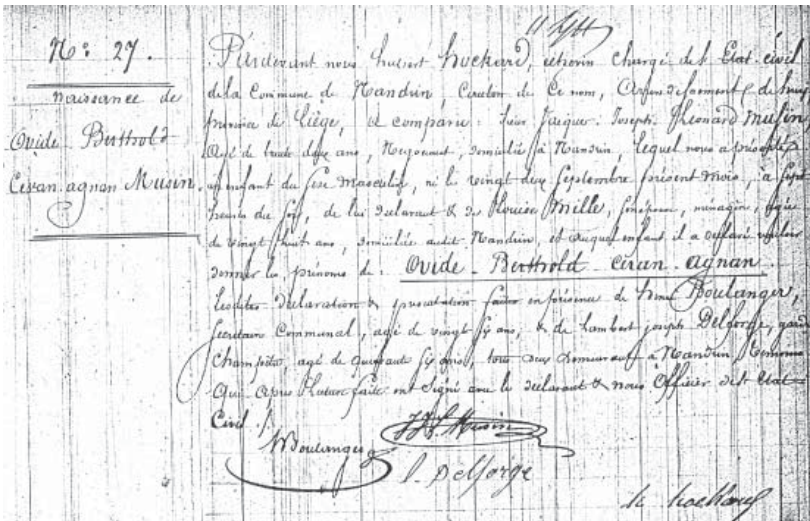 N.° 27.
naissance de
Ovide Berthold
Céran agnan Musin.
Pardevant nous hubert hockard, échevin chargé de l'Etat civil
de la Commune de Nandrin, Canton de Ce nom, Arrondissement de huy
province de Liège, a comparu : Jacques Joseph Léonard Musin
agé de trente deux ans, Négociant, domicilié à Nandrin, lequel nous a présenté
un enfant du sexe Masculin, né le vingt deux Septembre présent mois, à sept
heures du soir, de lui déclarant & de Louise Mille, son épouse, ménagère, agée
de vingt huit ans, domiciliée audit Nandrin, et auquel enfant il a déclaré vouloir
donner les prénoms de : Ovide - Berthold - céran - agnan.
Lesdites déclaration & présentation faites en présence de Boulanger,
Secrétaire Communal, agé de vingt six ans, & de Lambert joseph Delforge, garde
Champêtre, agé de quarante six ans, tous deux demeurant à Nandrin, témoins
Qui Après Lecture faite ont Signé avec le déclarant & nous Officier de l'Etat
Civil ./.
Boulanger
JJL Musin
l. Delforge
h. hockard